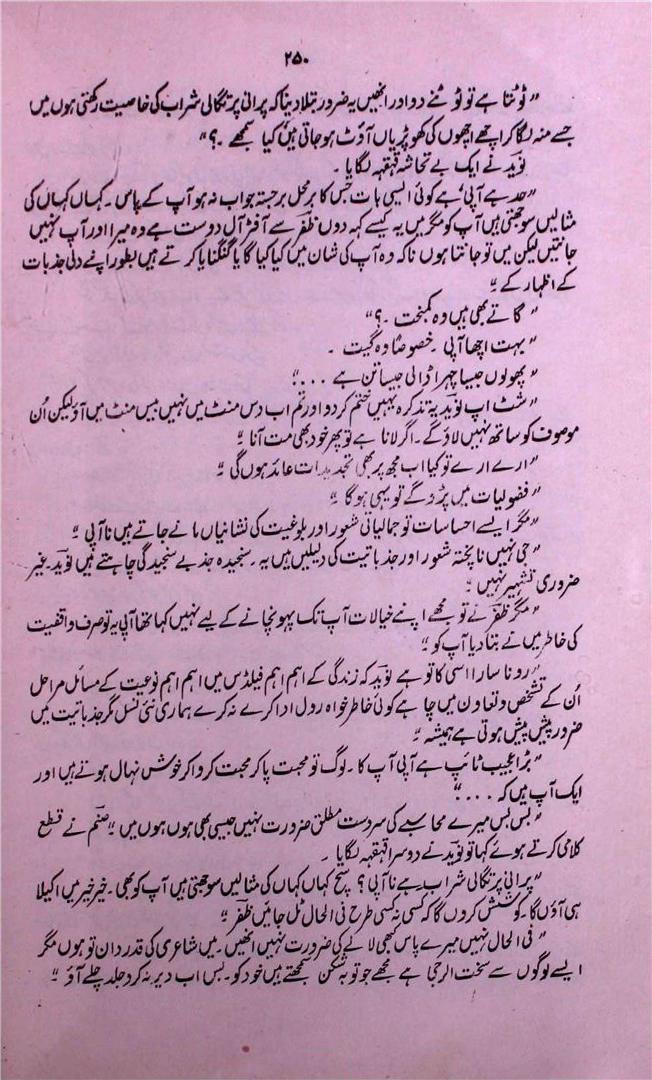 ۲۵۰
”ٹوٹتا ہے تو ٹوٹنے دو اور انھیں یہ ضرور بتلا دینا کہ پرانی پرتگالی شراب کی خاصیت رکھتی ہوں میں
جسے منہ لگا کر اچھے اچھوں کی کھوپڑیاں آؤٹ ہو جاتی ہیں کیا سمجھے ۔؟“
نوید نے ایک بے تحاشہ قہقہہ لگایا ۔
”حد ہے آپی، ہے کوئی ایسی بات جس کا برمحل برجستہ جواب نہ ہو آپ کے پاس ۔ کہاں کہاں کی
مثالیں سوجھتی ہیں آپ کو مگر میں یہ کیسے کہہ دوں ظفر سے آفٹر آل دوست ہے وہ میرا اور آپ نہیں
جانتیں لیکن میں تو جانتا ہوں نا کہ وہ آپ کی شان میں کیا کیا گایا گنگنایا کرتے ہیں بطور اپنے دلی جذبات
کے اظہار کے ۔“
”گاتے بھی ہیں وہ کمبخت ۔؟“
”بہت اچھا آپی ۔ خصوصاً وہ گیت ۔
”پھولوں جیسا چہرا ڈالی جیسا تن ہے ...“
”شٹ اپ نوید یہ تذکرہ یہیں ختم کر دو اور تم اب دس منٹ میں نہیں بیس منٹ میں آؤ لیکن اُن
موصوف کو ساتھ نہیں لاؤ گے ۔ اگر لانا ہے تو پھر خود بھی مت آنا ۔“
”ارے ارے تو کیا اب مجھ پر بھی تحدیدات عائد ہوں گی ۔“
”فضولیات میں پڑو گے تو یہی ہو گا ۔“
”مگر ایسے احساسات تو جمالیاتی شعور اور بلوغیت کی نشانیاں مانے جاتے ہیں نا آپی ۔“
”جی نہیں ناپختہ شعور اور جذباتیت کی دلیلیں ہیں یہ ۔ سنجیدہ جذبے سنجیدگی چاہتے ہیں نوید ۔ غیر
ضروری تشہیر نہیں ۔“
”مگر ظفر نے تو مجھے اپنے خیالات آپ تک پہونچانے کے لیے نہیں کہا تھا آپی یہ تو صرف واقفیت
کی خاطر میں نے بتا دیا آپ کو ۔“
”رونا سارا اسی کا تو ہے نوید کہ زندگی کے اہم اہم فیلڈس میں اہم اہم نوعیت کے مسائل مراحل
اُن کے تشخص و تعاون میں چاہے کوئی خاطر خواہ رول ادا کرے نہ کرے ہماری نئی نسل مگر جذباتیت میں
ضرور پیش پیش ہوتی ہے ہمیشہ ۔“
”بڑا عجیب ٹائپ ہے آپی آپ کا ۔ لوگ تو محبت پا کر محبت کروا کر خوش نہال ہوتے ہیں اور
ایک آپ ہیں کہ ....“
”بس بس میرے محاسبے کی سردست مطلق ضرورت نہیں جیسی بھی ہوں ہوں میں ۔“ صنم نے قطع
کلامی کرتے ہوئے کہا تو نوید نے دوسرا قہقہہ لگایا ۔
”پرانی پرتگالی شراب ۔ ہے نا آپی؟ سچ کہاں کہاں کی مثالیں سوجھتی ہیں آپ کو بھی ۔ خیر خیر میں اکیلا
ہی آؤں گا ۔ کوشش کروں گا کہ کسی نہ کسی طرح فی الحال ٹل جائیں ظفر ۔“
”فی الحال نہیں میرے پاس کبھی لانے کی ضرورت نہیں انھیں ۔ میں شاعری کی قدردان تو ہوں مگر
ایسے لوگوں سے سخت الرجی ہے مجھے جو توبہ شکن سمجھتے ہیں خود کو ۔ بس اب دیر نہ کرو جلد چلے آؤ ۔“